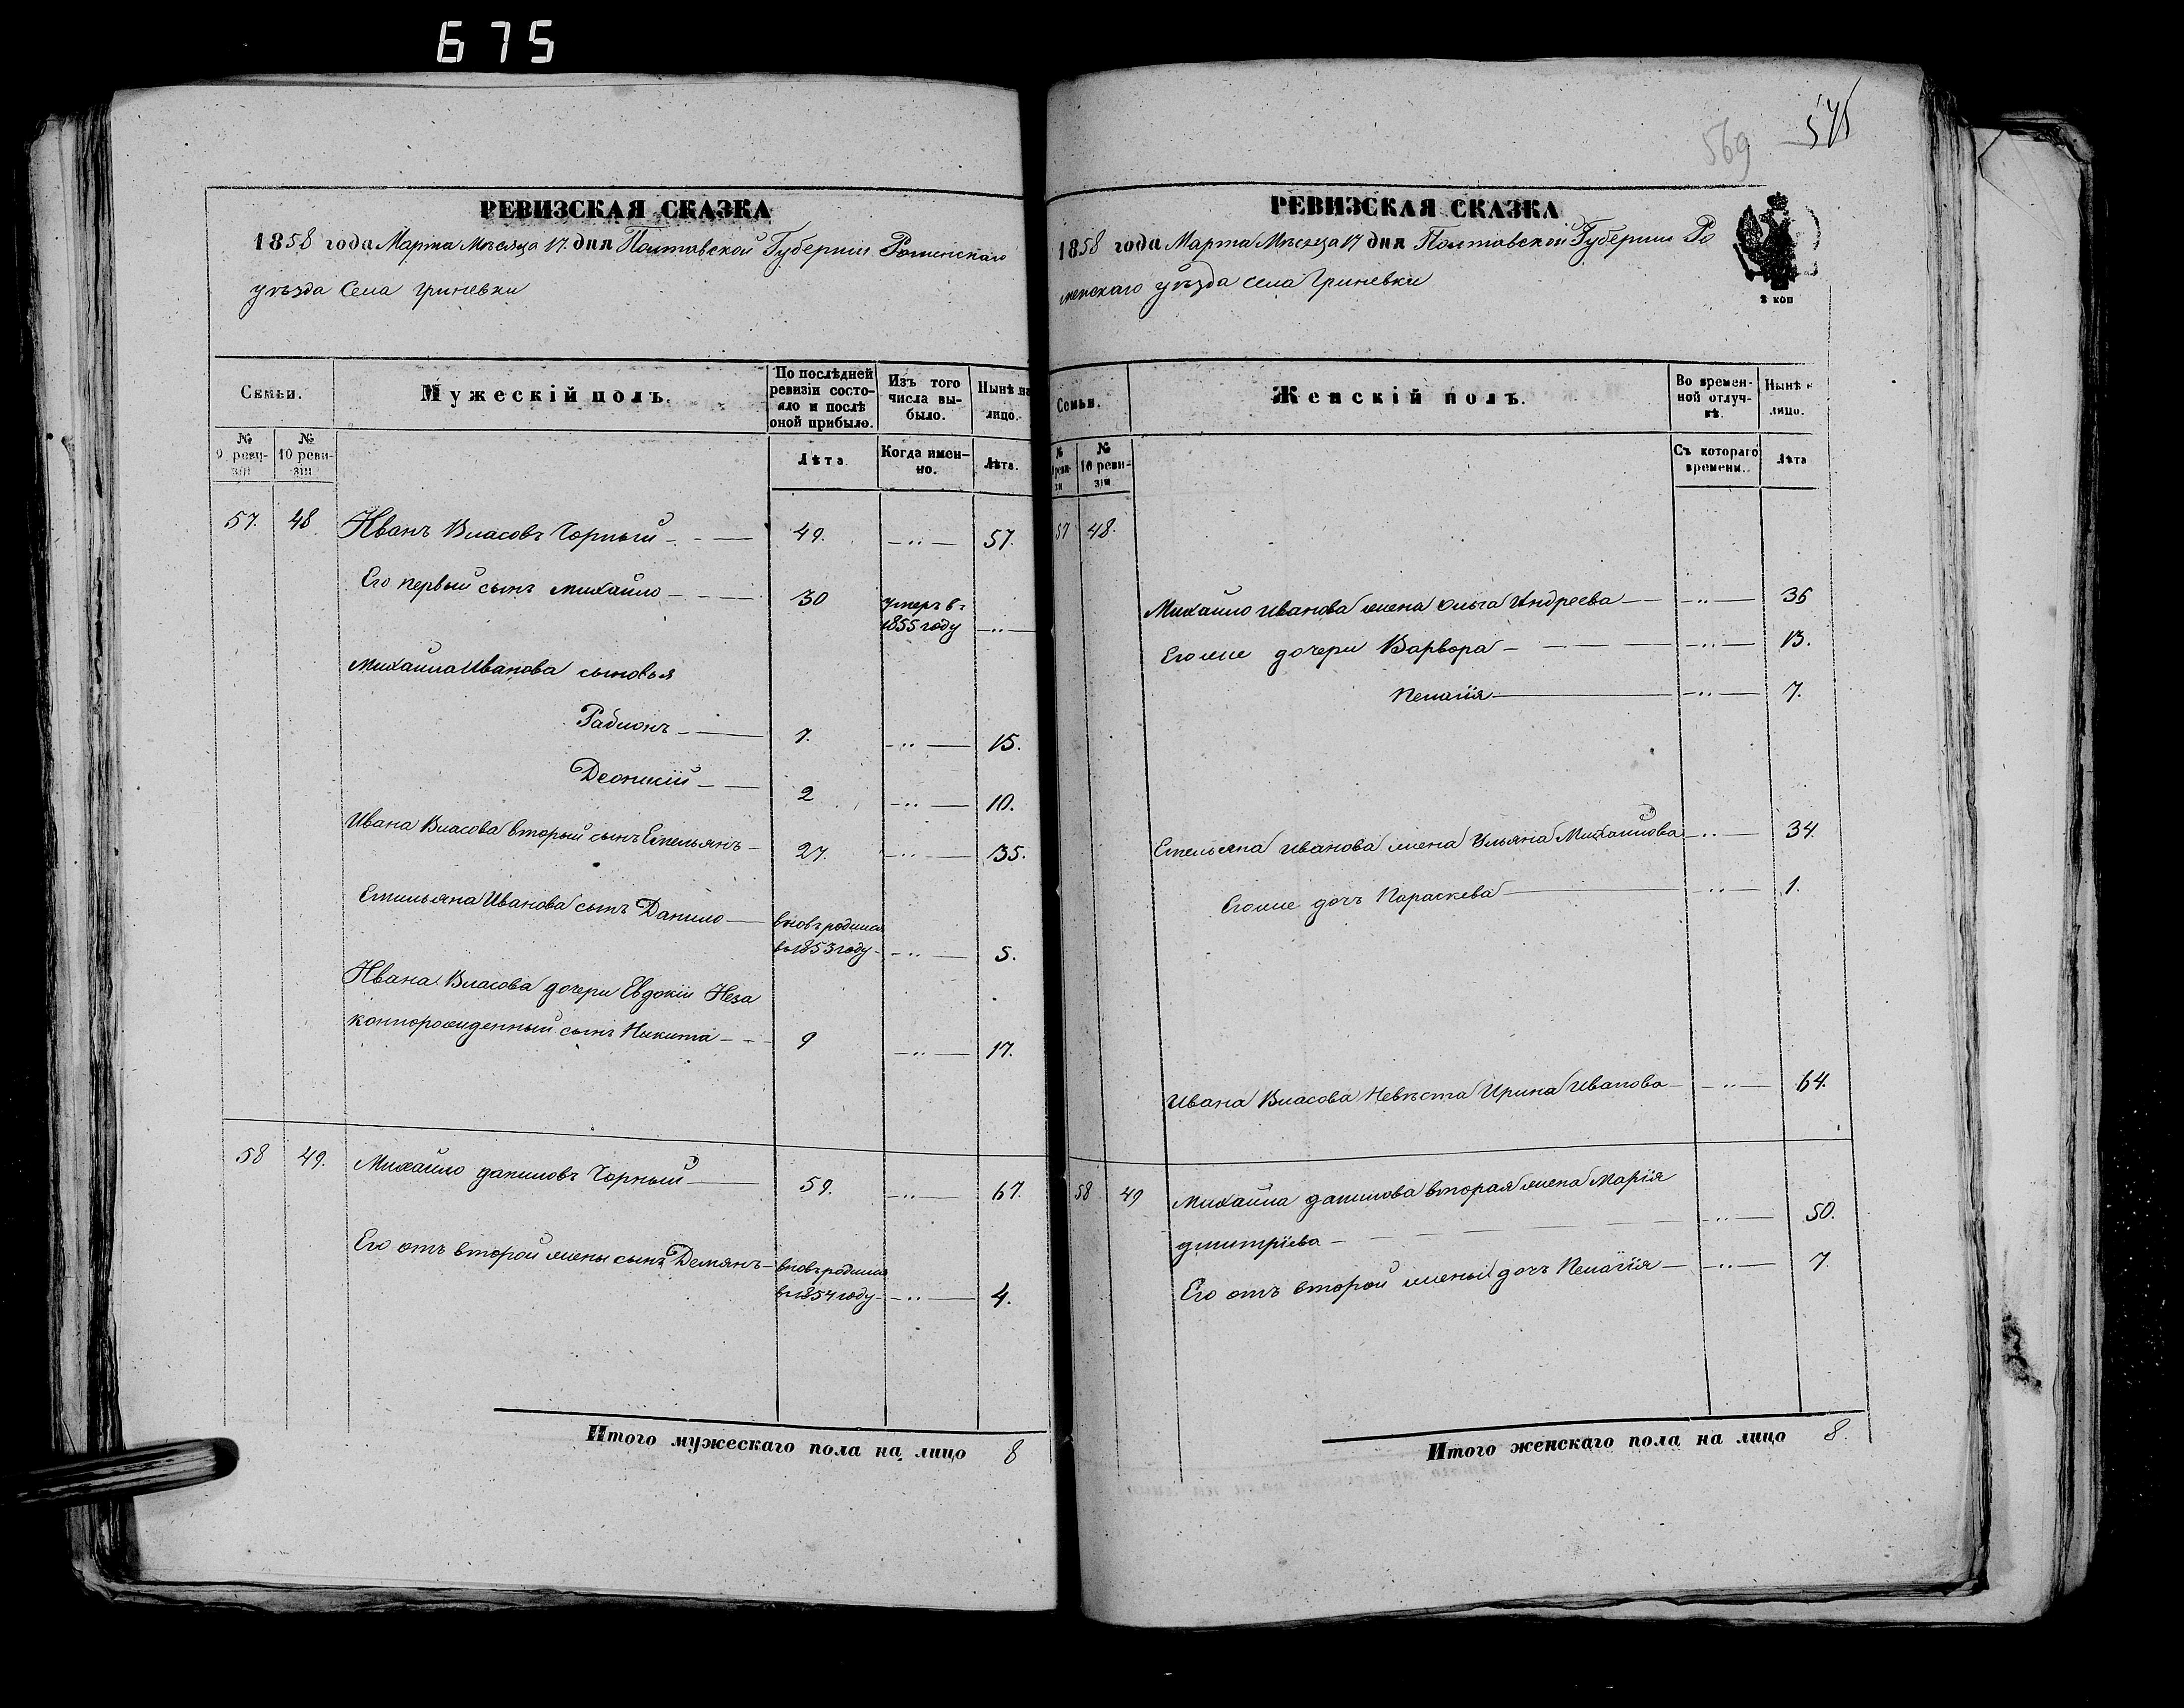 675
569
РЕВИЗСКАЯ СКАЗКА
1858 года Марта Мѣсяца 17. дня Полтавской Губерніи Роменскаго
уѣзда Села Гриневки
Семьи.
Мужескій полъ.
По послѣдней ревизіи состояло и послѣ оной прибыло.
Изъ того числа выбыло.
Нынѣ на лицо.
№ 9 ревизіи
№ 10 ревизіи
Лѣта.
Когда именно.
Лѣта.
57. 48 Иванъ Власовъ Чорный 49. 57.
Его первый сынъ Михайло 30 умеръ въ
1855 году
Михайла Иванова сыновья
Радионъ 7. 15.
Деонисій 2 10.
Ивана Власова вторый сынъ Емельянъ 27. 35.
Емильяна Иванова сынъ Данило вновь родился
въ 1853 году 5.
Ивана Власова дочери Евдокіи Неза
коннорожденный сынъ Никита 9 17.
58 49. Михайло Даниловъ Чорный 59. 67.
Его отъ второй жены сынъ Демянъ вновь родился
въ 1854 году 4.
Итого мужескаго пола на лицо 8
РЕВИЗСКАЯ СКАЗКА
1858 года Марта Мѣсяца 17 дня Полтавской Губерніи Ро
менскаго уѣзда села Гриневки
2 коп
Семьи.
Женскій полъ.
Во временной отлучкѣ.
Нынѣ
лицо.
№ ревизи
№ 10 ревизіи
Съ котораго времени.
Лѣта
57 48.
Михайло Иванова жена Ольга Андреева 36
Его же дочери Варвора 13.
Пелагія 7.
Емельяна Иванова жена Ульяна Михайлова 34.
Его же дочь Параскева 1.
Ивана Власова Невѣста Ирина Иванова 64.
58 49 Михайла Данилова вторая жена Марія
Дмитріева 50.
Его отъ второй жены дочь Пелагія 7.
Итого женскаго пола на лицо 8.